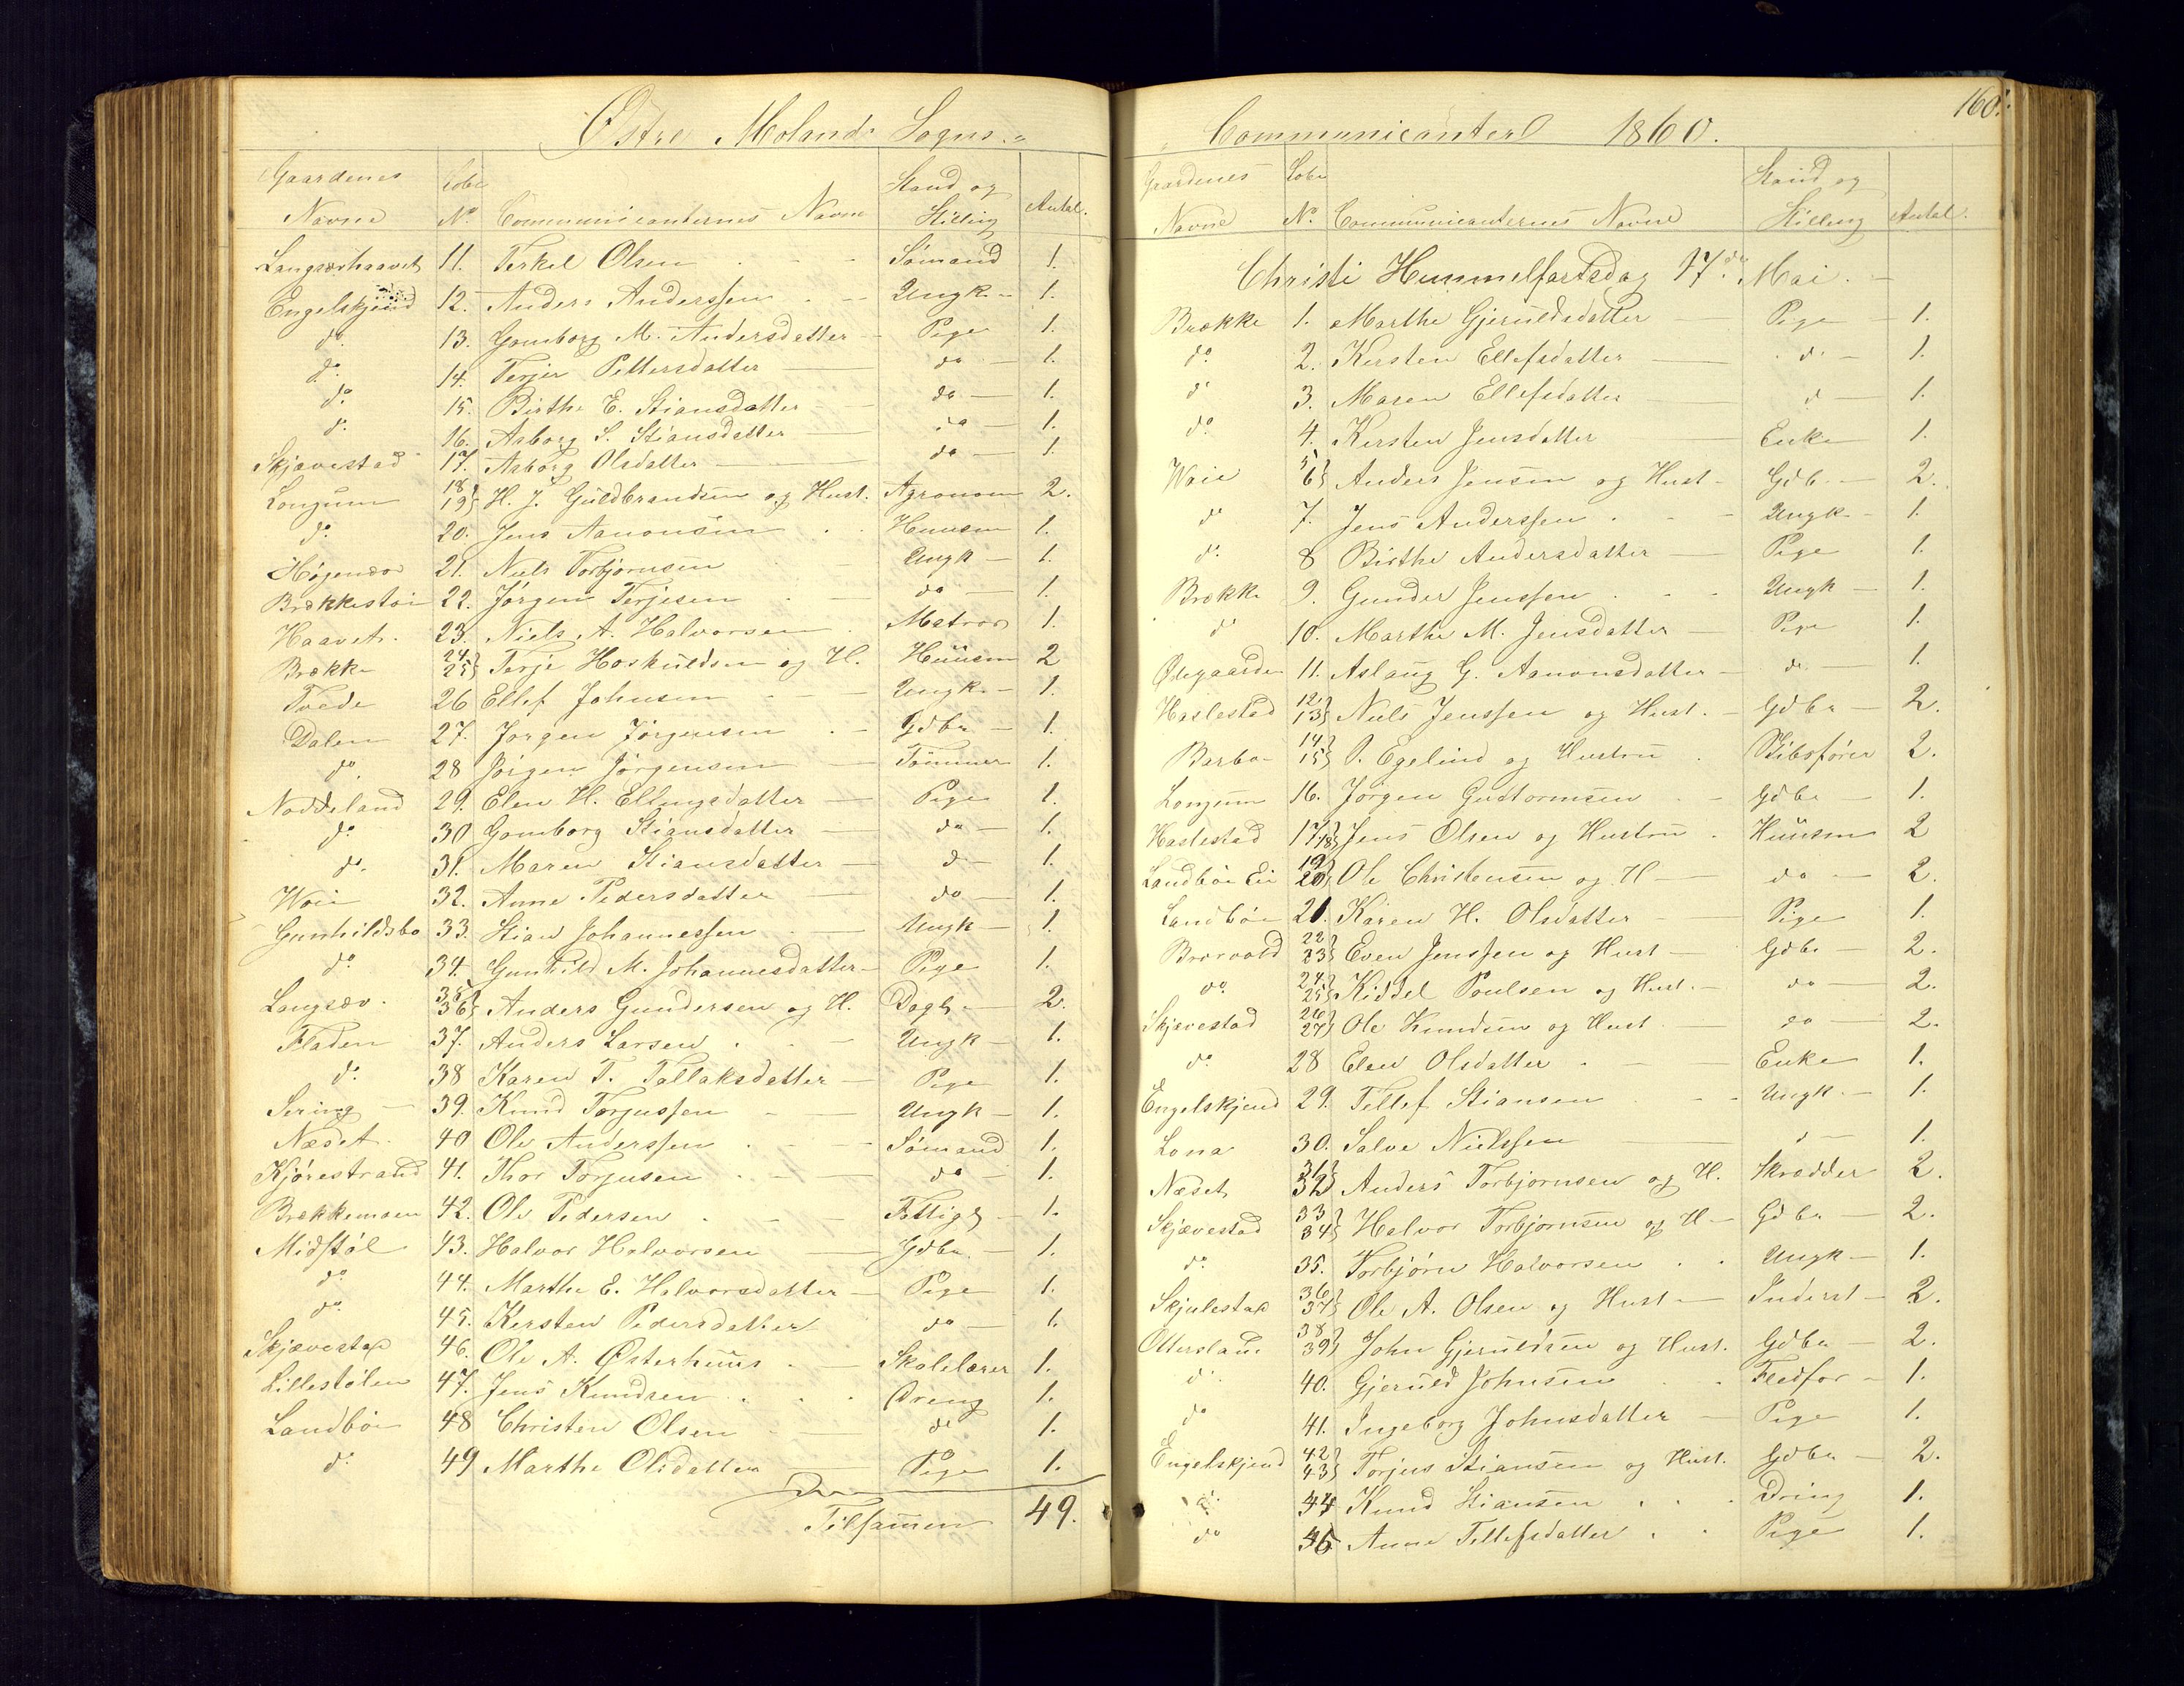 Østre Molands Sogns
Gaardenes Navne Løbe No Communicanternes Navne Stand og Stilling Antal.
Langsæehaavet 11. Terkel Olsen Sømand 1.
Engelskjend 12. Anders Anderssen Ungk. 1.
do 13. Gomborg M. Andersdatter Pige 1.
do 14. Terjer Pettersdatter do 1.
do 15. Birthe E. Stiansdatter do 1.
do 16. Asborg S. Stiansdatter do 1.
Skjævestad 17. Asborg Olsdatter do 1.
Longum 18 19 H. J. Guldbrandsen og Hust. Agronom 2.
do 20. Jens Aanonsen Huusm 1.
21. Niels Torbjørnsen Ungk 1.
Brækkestøi 22. Jørgen Terjesen do 1.
Haavet 23. Niels A. Halvorsen Matros 1.
Brække 24. 25 Terje Hoskuldsen og H. Huusm 2
Tvede 26 Ellef Johnsen Ungk. 1.
Dalen 27. Jørgen Jørgensen Gdbr 1.
do. 28 Jørgen Jørgensen Tømmer 1.
Noddeland 29. Elen H. Ellingsdatter Pige 1.
do 30 Gomborg Stiansdatter do 1.
do. 31. Maren Stiansdatter d 1.
Woie 32. Anne Pedersdatter do 1.
Gunhildsbo 33. Stian Johannessen Ungk 1.
do 34. Gunhild M. Johannesdatter Pige 1.
Langsæv. 35 36 Anders Gundersen og H. Dagl. 2.
Fladen 37. Anders Larsen Ungk 1.
do 38 Karen T. Tallaksdatter Pige 1.
Sering 39. Knud Torjussen Ungk 1.
Næset 40 Ole Anderssen Sømand 1.
Kjørestrand 41. Thor Torjusen do 1.
Brækkemoen 42. Ole Pedersen Fattigl 1.
Midstøl 43. Halvor Halvorsen Gdbr. 1.
do 44. Marthe E. Halvorsdatter Pige 1.
do 45. Kersten Pedersdatter do 1.
Skjævestad 46. Ole A. Østerhuus Skolelærer 1.
Lillestølen 47. Jens Knudsen Dreng 1.
Landbøe 48 Christen Olsen do 1.
do 49 Marthe Olsdatter Pige 1.
Tilsammen 49.
160.
Communicanter 1860.
Gaardenes Navne Løbe No. Communicanternes Navne Stand og Stilling Antal.
Christi Himmelfartsdag 17de Mai.
Brække 1. Marthe Gjeruldsdatter Pige 1.
do 2. Kersten Ellefsdatter do 1.
do 3. Maren Ellefsdatter d 1.
do 4. Kersten Jensdatter Enke 1.
Woie 5 6 Anders Jensen og Hust. Gdb. 2.
do 7. Jens Anderssen Ungk. 1.
do 8 Birthe Andersdatter Pige 1.
Brække 9. Gunder Jenssen Ungk 1.
do 10. Marthe M. Jensdatter Pige 1.
Ødegaarden 11. Aslaug G. Aanonsdatter do 1.
Haslestad 12 13 Niels Jenssen og Hust. Gdbr 2.
Barbo 14 15 O. Egelind og Hustru Skibsfører 2.
Longum 16. Jørgen Guttormsen Gdbr 1.
Haslestad 17 18 Jens Olsen og Hustru Huusm 2
Landbøe Ei 19 20 Ole Christensen og H do 2.
Landbøe 21. Karen H. Olsdatter Pige 1.
22 23 Even Jenssen og Hust Gdbr 2.
do 24 25 Kiddel Poulsen og Hust. do 2.
Skjævestad 26 27 Ole Knudsen og Hust do 2.
do 28 Elen Olsdatter Enke 1.
Engelskjend 29. Tellef Stiansen Ungk. 1.
Lona 30. Salve Nielssen d 1.
Næset 31 32 Anders Torbjørnsen og H. Skrædder 2.
Skjævestad 33 34 Halvor Torbjørnsen og H Gdbr 2.
do 35. Torbjørn Halvorsen Ungk 1.
Skjulestad 36 37 Ole A. Olsen og Hust Inderst 2.
Ottersland 38 39 John Gjeruldsen og Hust. Gdbr 2.
do 40. Gjeruld Johnsen Fledfør 1.
do 41. Ingeborg Johnsdatter Pige 1.
Engelskjend 42 43 Torjus Stiansen og Hust. Gdbr 2.
do 44 Knud Stiansen Dreng 1.
do 45 Anne Tellefsdatter Pige 1.